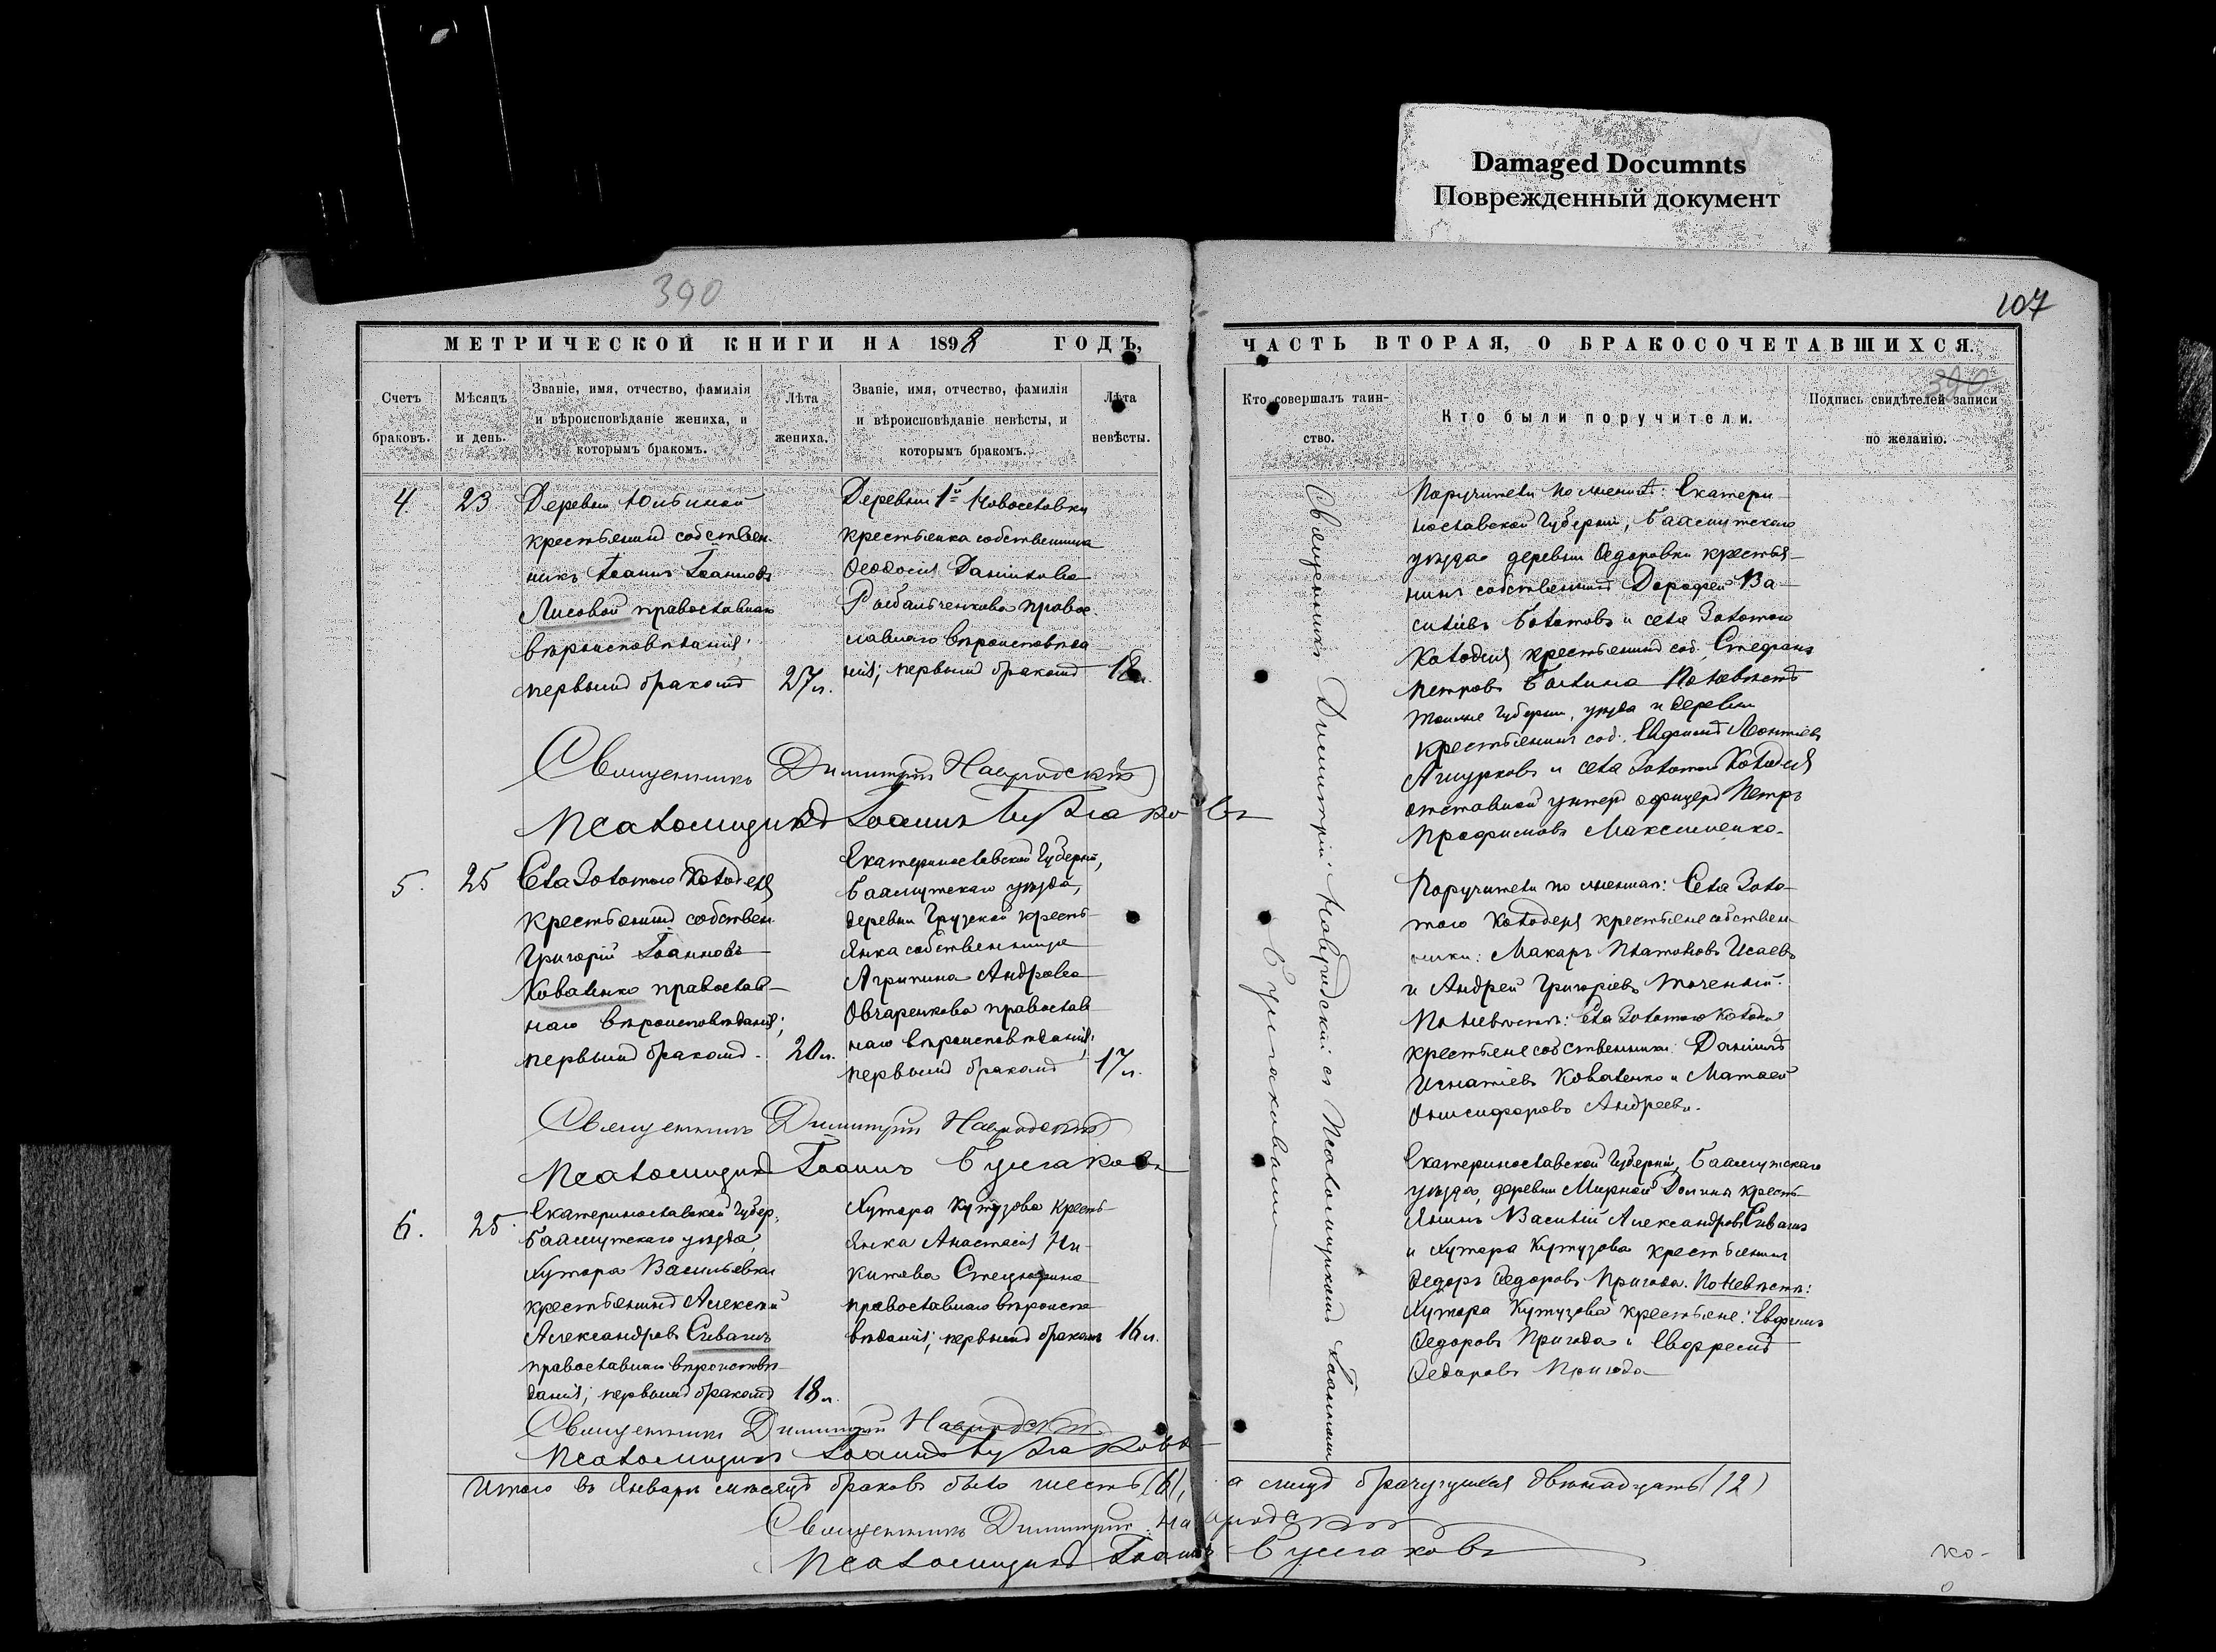 Damaged Documnts
Поврежденный документ
390
107
МЕТРИЧЕСКОЙ КНИГИ НА 1898 ГОДЪ,
ЧАСТЬ ВТОРАЯ, О БРАКОСОЧЕТАВШИХСЯ.
390
Счетъ браковъ.
Мѣсяцъ и день.
Званіе, имя, отчество, фамилія
и вѣроисповѣданіе жениха, и
которымъ бракомъ.
Лѣта жениха.
Званіе, имя, отчество, фамилія
и вѣроисповѣданіе невѣсты, и
которымъ бракомъ.
Лѣта невѣсты.
Кто совершалъ таин-
ство.
Кто были поручители.
Подпись свидѣтелей записи
по желанію.
4.
23
Деревни
крестьянинъ собствен.
никъ Іоаннъ Іоанновъ
Лисовой православнаго
вѣроисповѣданія;
первымъ бракомъ
27 л.
Деревни 1й Новоселовки
крестьянка собственница
Ѳеодосія Даніилова
Рыбальченкова правос-
лавнаго вѣроисповѣда
нія; первымъ бракомъ
18 л.
Поручители по женихѣ: Екатери-
нославской Губерніи, Бахмутскаго
уѣзда деревни Ѳедоровки крестья-
нинъ собственникъ Дорофей Ва-
силіевъ Болотовъ и села Золотого
Колодезя крестьянинъ соб. Стефанъ
Петровъ По невѣстѣ
тойже Губерніи, уѣзда и деревни
крестьянинъ соб. Леонтіевъ
и села Золотого Колодезя
отставной унтеръ офицеръ Петръ
Трофимовъ Максименко.
Священникъ Димитрій Навродскій
Псаломщикъ Іоаннъ Булгаковъ
Священникъ Димитрій Навродскій съ Псаломщикомъ Іоанномъ
Булгаковымъ
5.
25
Села Золотого Колодезя
крестьянинъ собствен.
Григорій Іоанновъ
Коваленко православ-
наго вѣроисповѣданія;
первымъ бракомъ.
20 л.
Екатеринославской Губерніи,
Бахмутскаго уѣзда,
деревни Грузской кресть-
янка собственница
Агрипина Андреева
Овчаренкова православ
наго вѣроисповѣданія;
первымъ бракомъ
17 л.
Поручители по женихѣ: Села Золо-
того Колодезя крестьяне собствен-
ники: Макаръ Платоновъ Исаевъ
и Андрей Григоріевъ Точеный.
По невѣстѣ: Села Золотого Колодезя
крестьяне собственники: Даніилъ
Игнатіевъ Коваленко и Матвей
Онисифоровъ Андреевъ.
Священникъ Димитрій Навродскій
Псаломщикъ Іоаннъ Булгаковъ
6.
25.
Екатеринославской Губер.
Бахмутскаго уѣзда,
Хутора Васильевки
крестьянинъ Алексѣй
Александровъ Сивашъ
православнаго вѣроисповѣ-
данія; первымъ бракомъ
18 л.
Хутора Кутузова кресть-
янка Анастасія Ни-
китова Стецюрина
православнаго вѣроиспо
вѣданія; первымъ бракомъ
16 л.
Екатеринославской Губерніи, Бахмутскаго
уѣзда, деревни Мирной Долины кресть-
янинъ Василій Александровъ Сивашъ
и Хутора Кутузова крестьянинъ
Ѳедоръ Ѳедоровъ Пригода. По невѣстѣ:
Хутора Кутузова крестьяне: Евфимъ
Ѳедоровъ Пригода и
Ѳедоровъ Пригода
Священникъ Димитрій Навродскій
Псаломщикъ Іоаннъ Булгаковъ
Итого въ Январѣ мѣсяцѣ браковъ было шесть (6), а лицъ брачущихся двѣнадцать (12)
Священникъ Димитрій Навродскій
Псаломщикъ Іоаннъ Булгаковъ
ко-